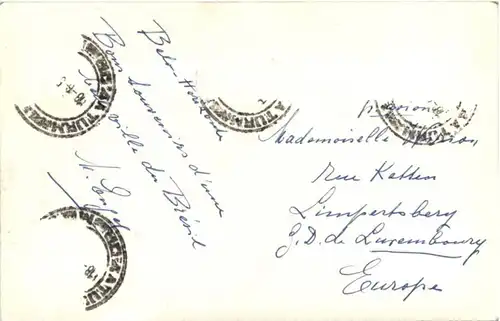 Belo Horizonte
Bons souvenirs d'une
ville du Brésil
par avion
Mademoiselle
Rue Ketten
Limpertsberg
G.D. de Luxembourg
Europe